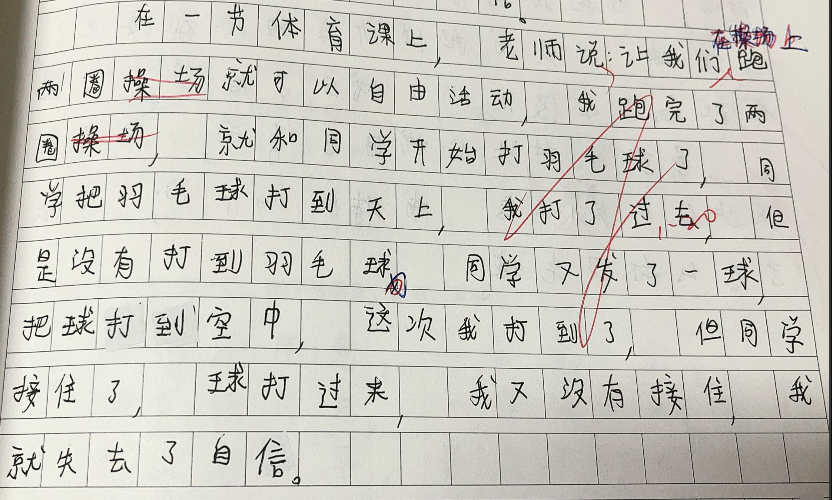 信。
在操场上
在一节体育课上，老师说：让我们跑
两圈操场就可以自由活动，我跑完了两
圈操场，就和同学开始打羽毛球了，同
学把羽毛球打到天上，我打了过去，但
是没有打到羽毛球。同学又发了一球，
把球打到空中，这次我打到了，但同学
接住了，球打过来，我又没有接住，我
就失去了自信。